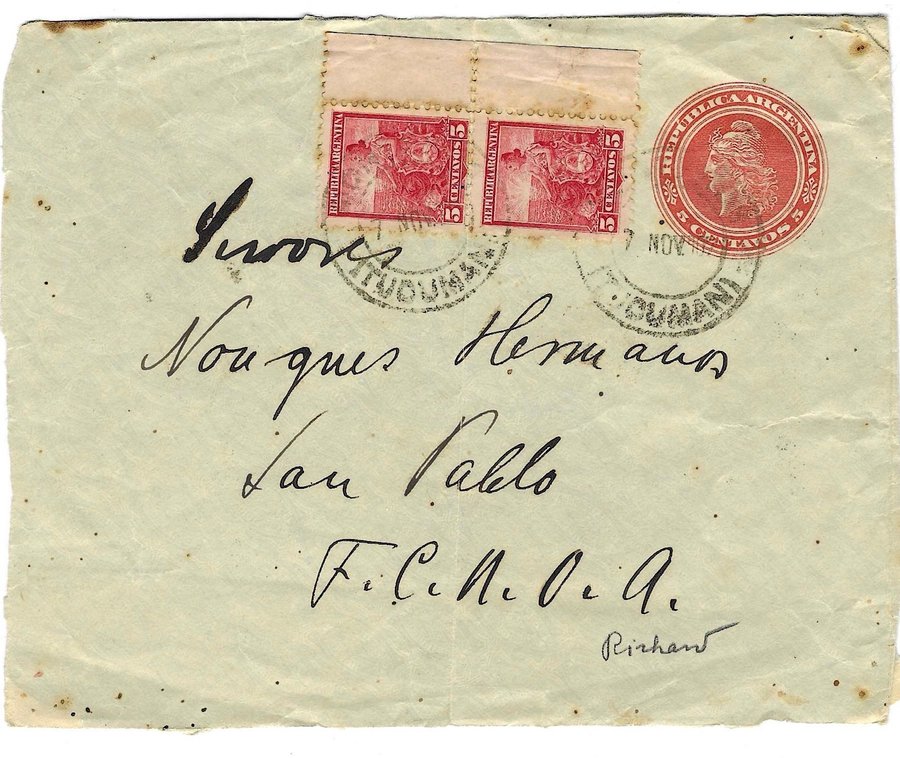 REPUBLICA ARGENTINA
5 CENTAVOS 5
REPUBLICA ARGENTINA
5 CENTAVOS 5
REPUBLICA ARGENTINA
5 CENTAVOS 5
7 NOV
(TUCUMAN)
7 NOV
(TUCUMAN)
Senores
Nougues Hermanos
San Pablo
F.C.N.O.A.
Richard